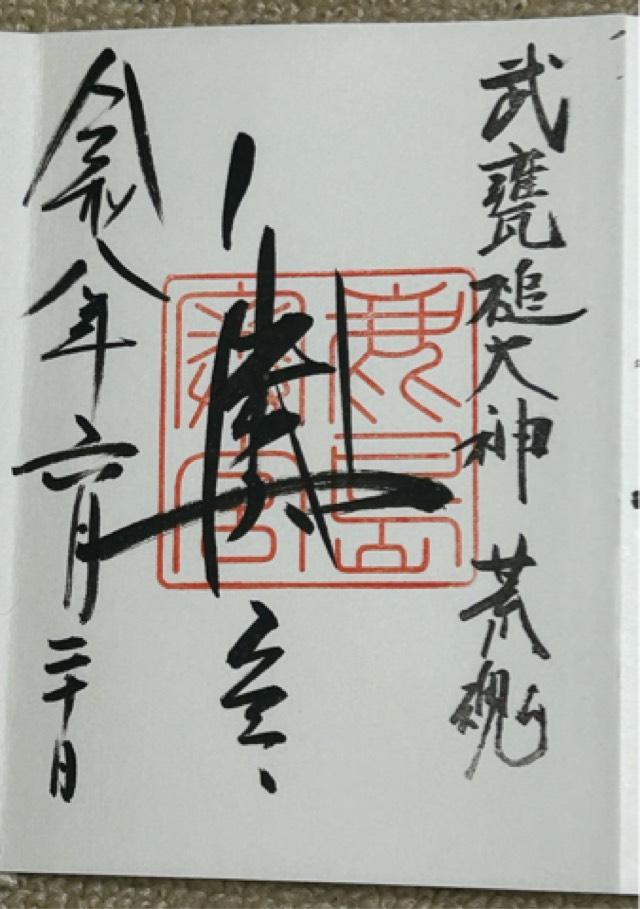 武甕槌大神 荒魂
奥宮
鹿島
奥宮
令和八年六月二十日